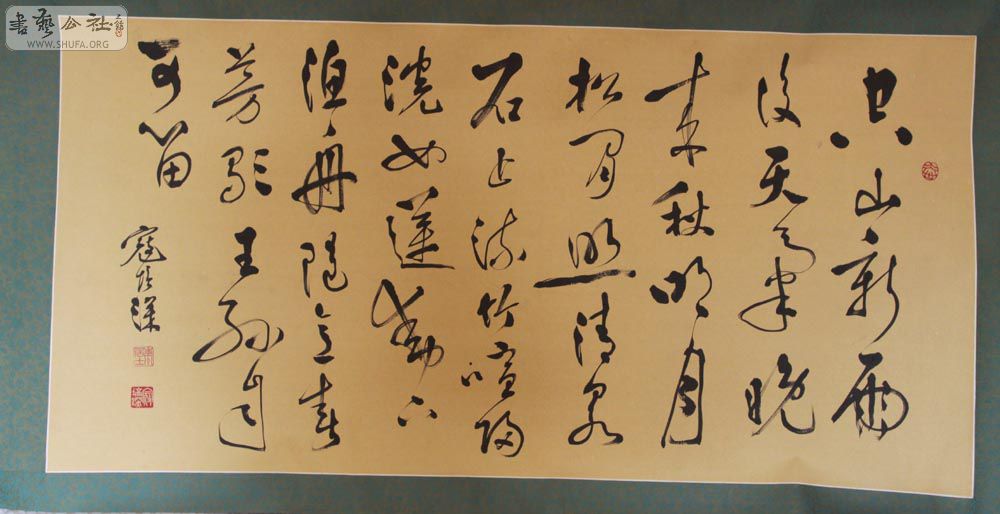 書藝公社
WWW.SHUFA.ORG
空山新雨
後天氣晚
來秋明月
松間照清泉
石上流竹喧歸
浣女蓮動下
漁舟隨意春
芳歇王孫自
可留
寇培深